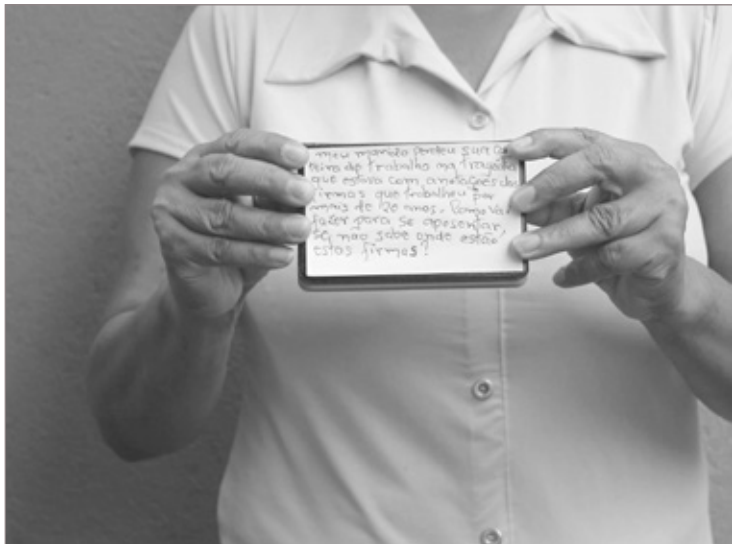 meu marido perdeu sua ca
teira de trabalho na tragédia
que estava com anotações das
firmas que trabalhou por
mais de 20 anos. Como vai
fazer para se aposentar,
se não sabe onde estão
estas firmas?